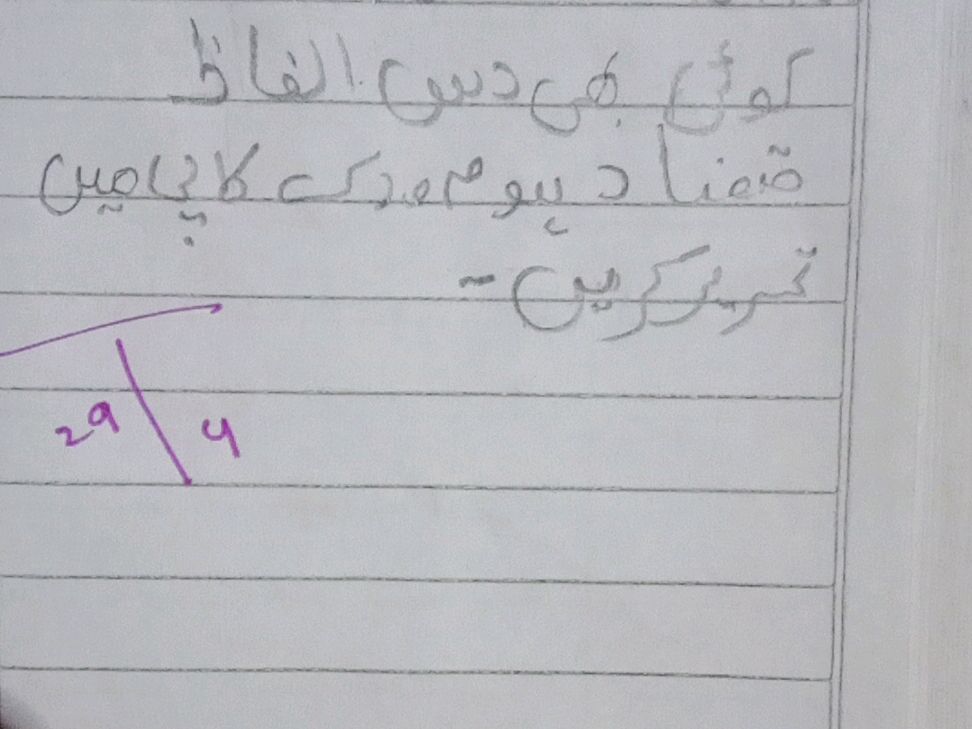 کوئی بھی دس الفاظ
متضاد ہوم ورک کاپی میں
تحریر کریں۔
29 \ 4